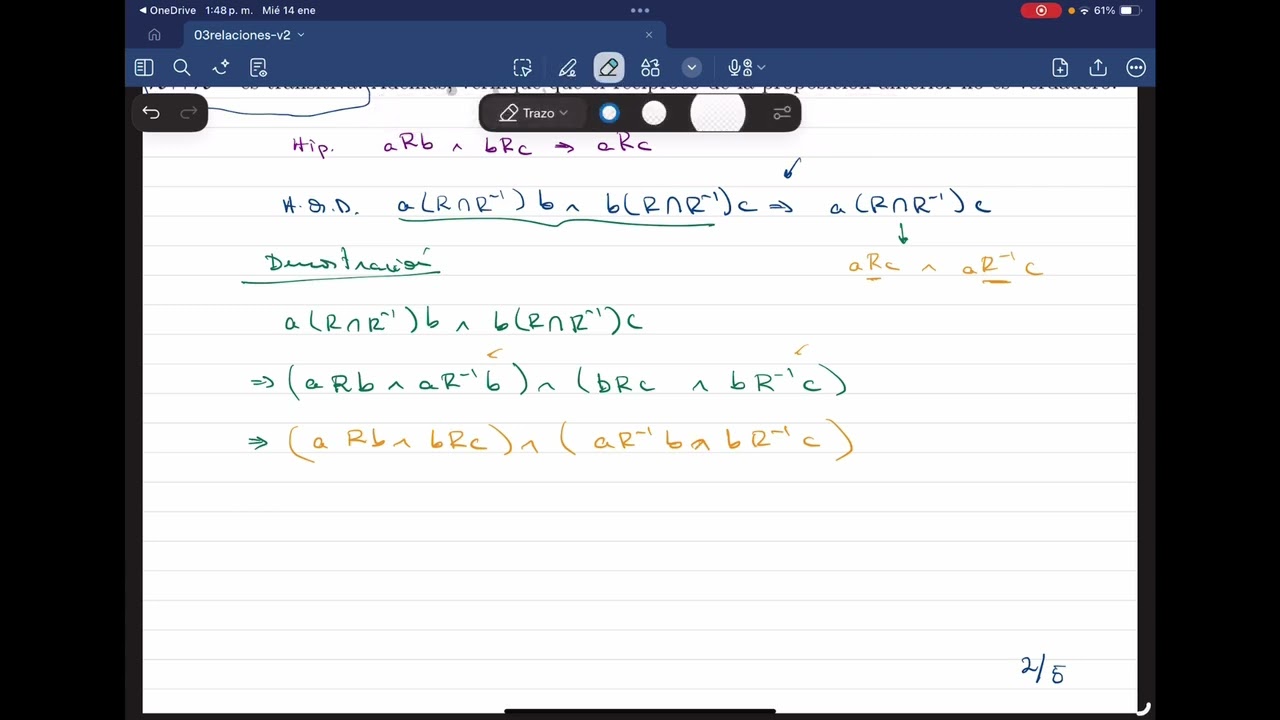 OneDrive 1:48 p. m. Mié 14 ene 61%
03relaciones-v2
es transitiva. Además, verifique que el recíproco de la proposición anterior no es verdadero.
Trazo
Hip. aRb ∧ bRc ⇒ aRc
H.Q.D. a(R∩R⁻¹)b ∧ b(R∩R⁻¹)c ⇒ a(R∩R⁻¹)c
aRc ∧ aR⁻¹c
Demostración
a(R∩R⁻¹)b ∧ b(R∩R⁻¹)c
⇒ (aRb ∧ aR⁻¹b) ∧ (bRc ∧ bR⁻¹c)
⇒ (aRb ∧ bRc) ∧ (aR⁻¹b ∧ bR⁻¹c)
2/5